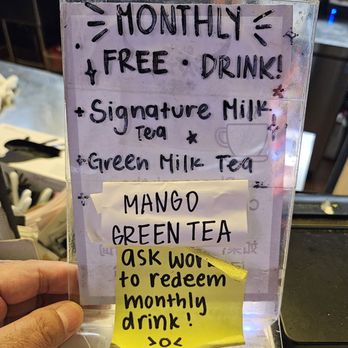 MONTHLY
FREE · DRINK!
Signature Milk
Tea
Green Milk Tea
MANGO
GREEN TEA
ask
to redeem
monthly
drink!
>o<